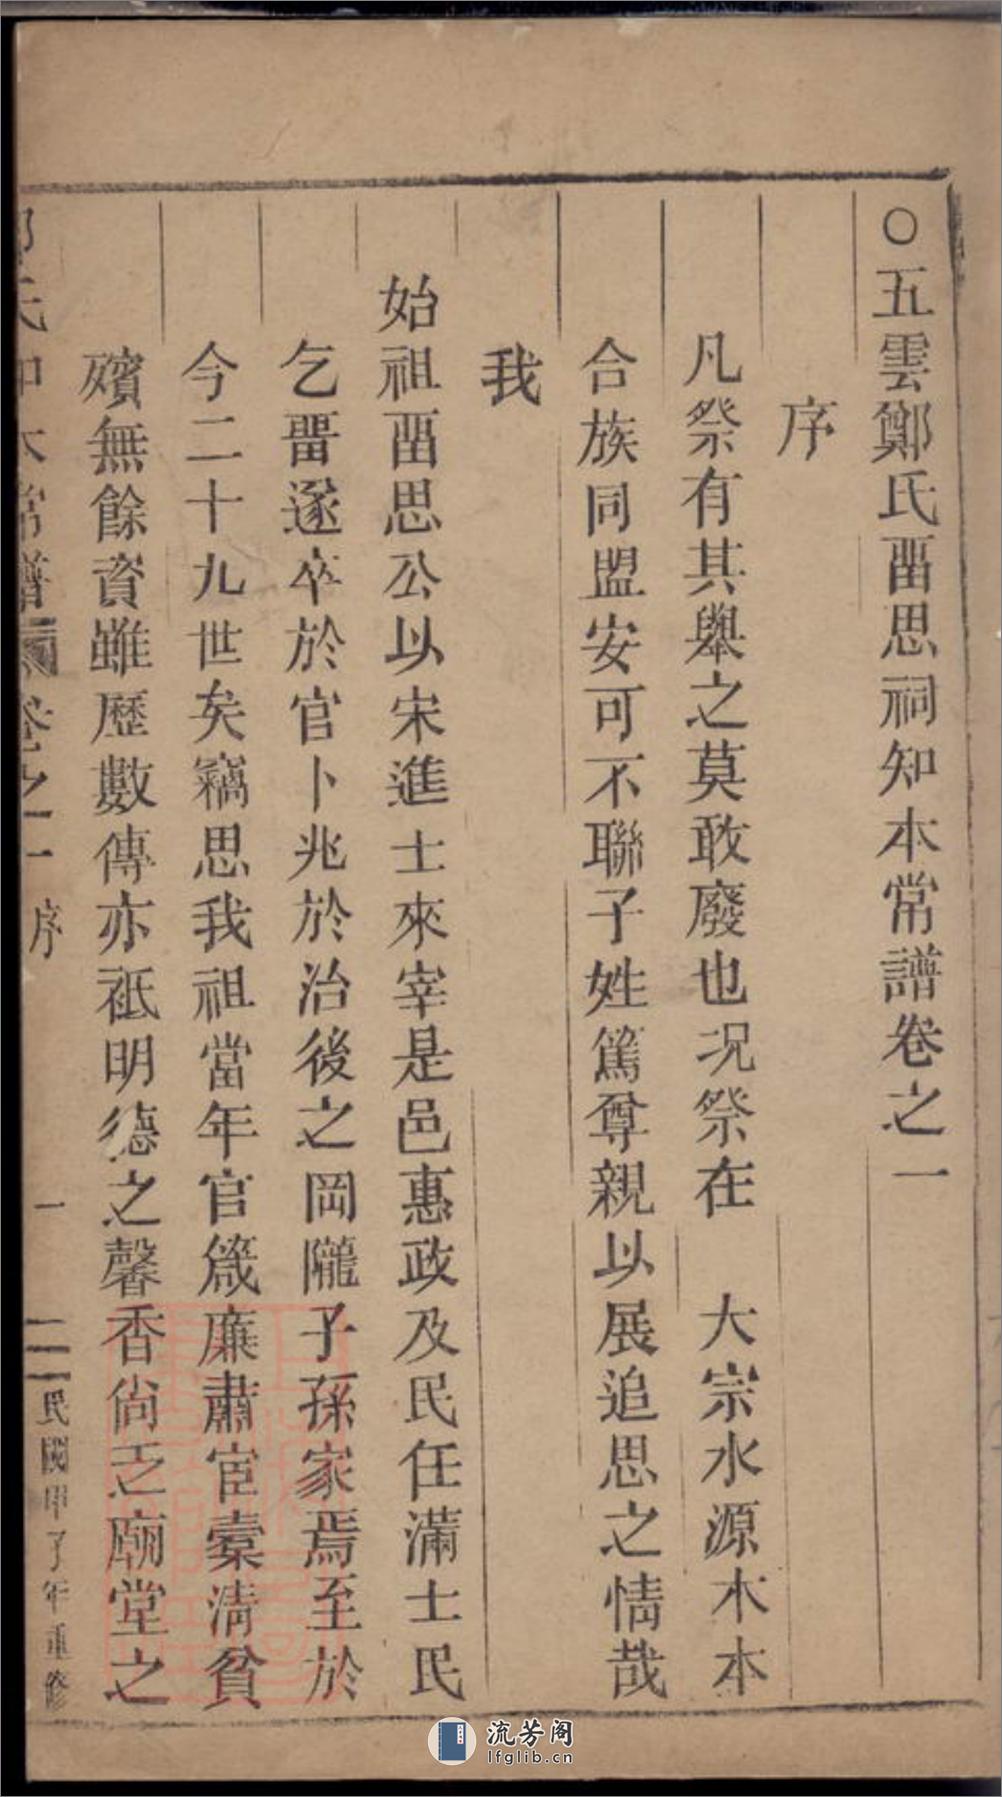 ○五雲鄭氏畱思祠知本常譜卷之一
序
凡祭有其舉之莫敢廢也况祭在　大宗水源木本
合族同盟安可不聯子姓篤尊親以展追思之情哉
我
始祖畱思公以宋進士來宰是邑惠政及民任滿士民
乞畱遂卒於官卜兆於治後之岡隴子孫家焉至於
今二十九世矣竊思我祖當年官箴廉肅宦橐清貧
殯無餘資雖歷數傳亦祗明德之馨香尙乏廟堂之
氏知本常譜 卷之一 序 一 民國甲子年重修
流芳阁
lfglib.cn